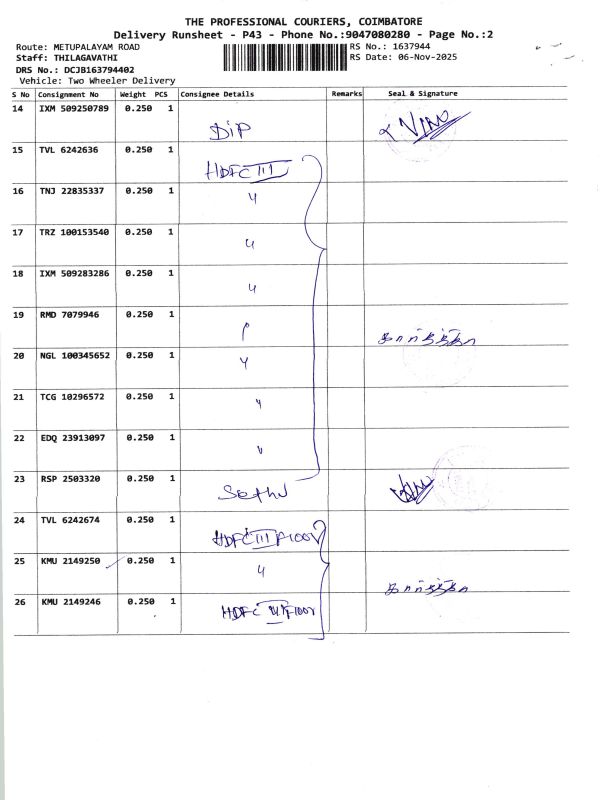 THE PROFESSIONAL COURIERS, COIMBATORE
Delivery Runsheet - P43 - Phone No.:9047080280 - Page No.:2
Route: METUPALAYAM ROAD RS No.: 1637944
Staff: THILAGAVATHI RS Date: 06-Nov-2025
DRS No.: DCJB163794402
Vehicle: Two Wheeler Delivery
S No Consignment No Weight PCS Consignee Details Remarks Seal & Signature
14 IXM 509250789 0.250 1 DiP
15 TVL 6242636 0.250 1 HDFC III
16 TNJ 22835337 0.250 1 "
17 TRZ 100153540 0.250 1 "
18 IXM 509283286 0.250 1 "
19 RMD 7079946 0.250 1
20 NGL 100345652 0.250 1 "
21 TCG 10296572 0.250 1 "
22 EDQ 23913097 0.250 1 "
23 RSP 2503320 0.250 1 Sethu
24 TVL 6242674 0.250 1 HDFC III Floor
25 KMU 2149250 0.250 1 "
26 KMU 2149246 0.250 1 HDFC III Floor